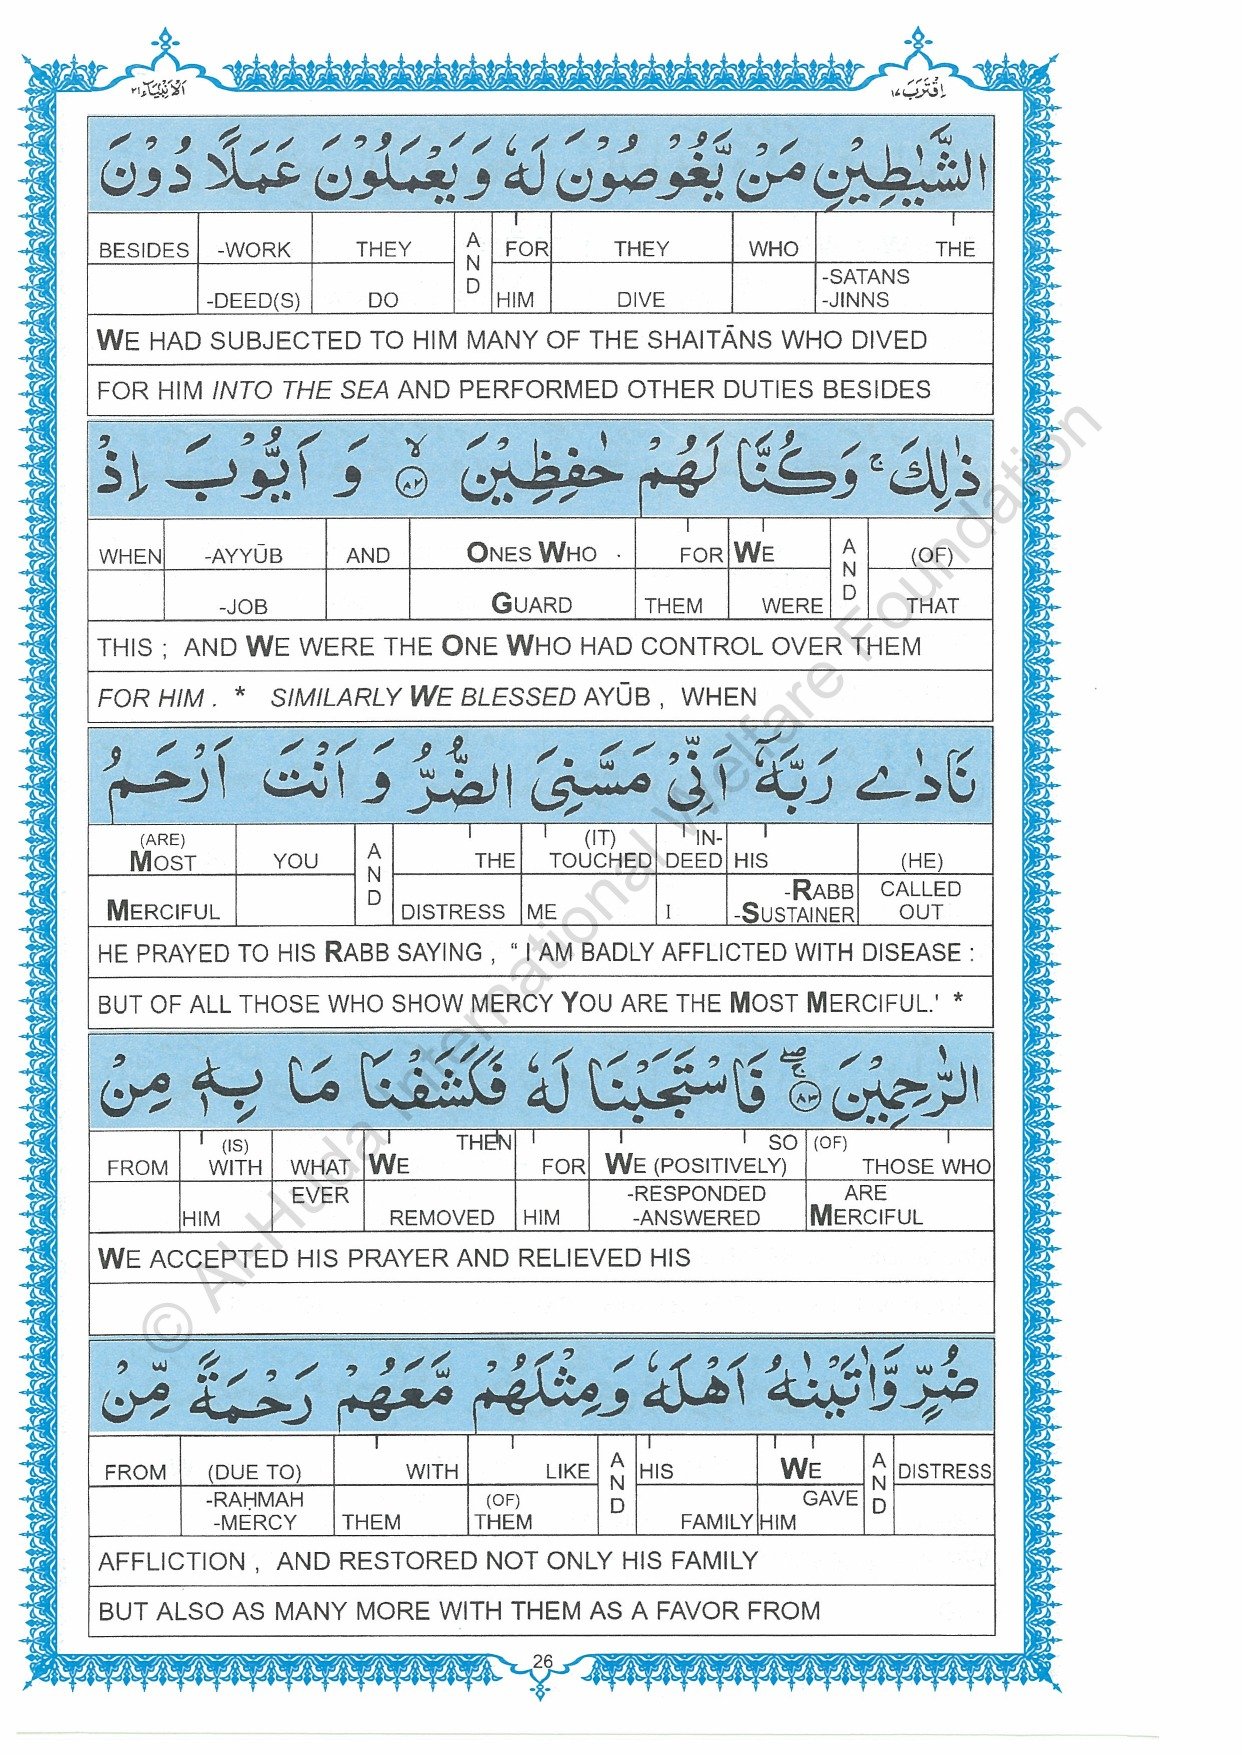 الأنبياء ٢١
اقترب ١٧
الشَّيٰطِيْنِ مَنْ يَّغُوْصُوْنَ لَهٗ وَ يَعْمَلُوْنَ عَمَلًا دُوْنَ
BESIDES -WORK THEY AND FOR THEY WHO THE
-DEED(S) DO HIM DIVE -SATANS -JINNS
WE HAD SUBJECTED TO HIM MANY OF THE SHAITĀNS WHO DIVED
FOR HIM INTO THE SEA AND PERFORMED OTHER DUTIES BESIDES
ذٰلِكَ ۚ وَكُنَّا لَهُمْ حٰفِظِيْنَ ۙ ﴿٨٢﴾ وَ اَيُّوْبَ اِذْ
WHEN -AYYŪB AND ONES WHO . FOR WE AND (OF)
-JOB GUARD THEM WERE THAT
THIS ; AND WE WERE THE ONE WHO HAD CONTROL OVER THEM
FOR HIM . * SIMILARLY WE BLESSED AYŪB , WHEN
نَادٰے رَبَّهٗۤ اَنِّیْ مَسَّنِیَ الضُّرُّ وَ اَنْتَ اَرْحَمُ
(ARE) MOST YOU AND THE (IT) TOUCHED IN-DEED HIS (HE)
MERCIFUL DISTRESS ME I -RABB -SUSTAINER CALLED OUT
HE PRAYED TO HIS RABB SAYING , “ I AM BADLY AFFLICTED WITH DISEASE :
BUT OF ALL THOSE WHO SHOW MERCY YOU ARE THE MOST MERCIFUL.' *
الرّٰحِمِيْنَ ۚۖ ﴿٨٣﴾ فَاسْتَجَبْنَا لَهٗ فَكَشَفْنَا مَا بِهٖ مِنْ
FROM (IS) WITH WHAT THEN WE FOR SO WE (POSITIVELY) (OF) THOSE WHO
HIM EVER REMOVED HIM -RESPONDED -ANSWERED ARE MERCIFUL
WE ACCEPTED HIS PRAYER AND RELIEVED HIS
ضُرٍّ وَّاٰتَيْنٰهُ اَهْلَهٗ وَمِثْلَهُمْ مَّعَهُمْ رَحْمَةً مِّنْ
FROM (DUE TO) WITH LIKE AND HIS WE AND DISTRESS
-RAḤMAH -MERCY THEM (OF) THEM FAMILY GAVE HIM
AFFLICTION , AND RESTORED NOT ONLY HIS FAMILY
BUT ALSO AS MANY MORE WITH THEM AS A FAVOR FROM
26
© Al-Huda International Welfare Foundation